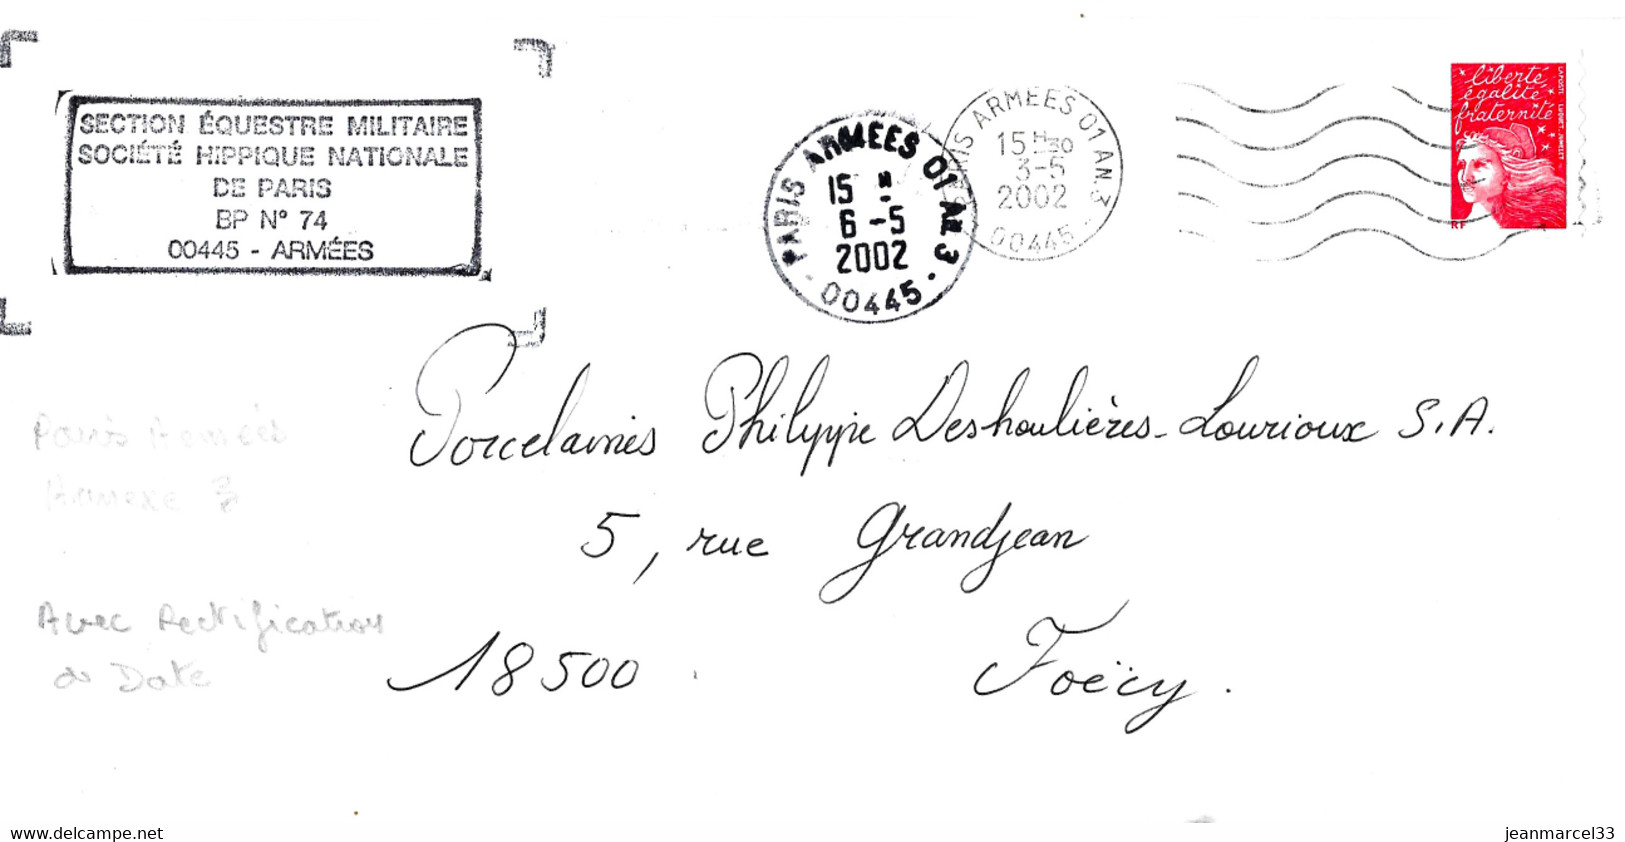 SECTION ÉQUESTRE MILITAIRE
SOCIÉTÉ HIPPIQUE NATIONALE
DE PARIS
BP N° 74
00445 - ARMÉES
PARIS ARMEES 01 AN. 3
15 H
6 - 5
2002
00445
PARIS ARMEES 01 AN. 3
15 H 30
3 - 5
2002
00445
liberté
égalité
fraternité
LA POSTE
RF
Porcelaines Philippe Deshoulières - Lourioux S.A.
5, rue Grandjean
18500 Foëcy.
Paris Armées
Annexe 3
Avec Rectification
de Date
www.delcampe.net
jeanmarcel33